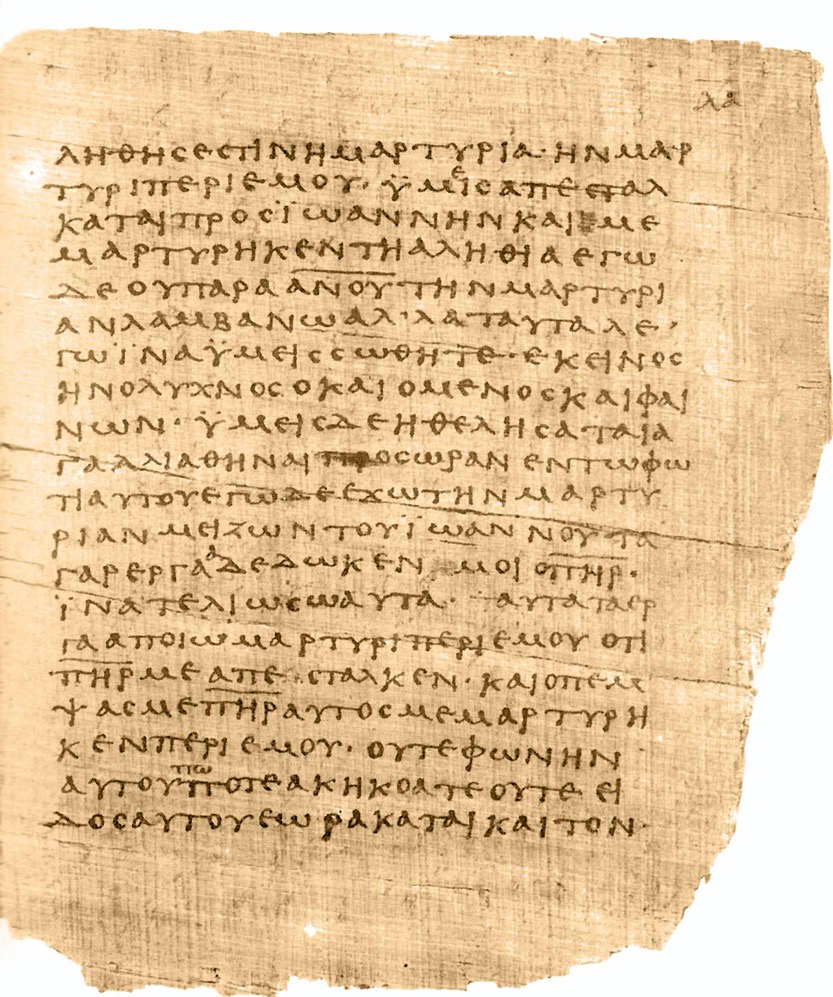 λα
ΛΗΘΗСΕСΤΙΝΗΜΑΡΤΥΡΙΑ· ΗΝΜΑΡ
ΤΥΡΙΠΕΡΙΕΜΟΥ· ΫΜεΙСΑΠΕСΤΑΛ
ΚΑΤΑΙΠΡΟСΪΩΑΝΝΗΝΚΑΙ ΜΕ
ΜΑΡΤΥΡΗΚΕΝΤΗΑΛΗΘΙΑΕΓΩ
ΔΕΟΥΠΑΡΑΑ̅Ν̅Ο̅Υ̅ΤΗΝΜΑΡΤΥΡΙ
ΑΝΛΑΜΒΑΝΩΑΛ·ΛΑΤΑΥΤΑΛΕ·
ΓΩΪΝΑΫΜΕΙССΩΘΗΤΕ· ΕΚΕΙΝΟС
ΗΝΟΛΥΧΝΟСΟΚΑΙΟΜΕΝΟСΚΑΙΦΑΙ
ΝΩΝ· ΫΜΕΙСΔΕΗΘΕΛΗСΑΤΑΙΑ
ΓΑΛΛΙΑΘΗΝΑΙΠΡΟСΩΡΑΝΕΝΤΩΦΩ
ΤΙΑΥΤΟΥΕΓΩΔΕΕΧΩΤΗΝΜΑΡΤΥ
ΡΙΑΝΜΕΙΖΩΝΤΟΥΪΩΑΝΝΟΥΤΑ
ΓΑΡΕΡΓΑαΔΕΔΩΚΕΝ ΜΟΙΟΠ̅Η̅Ρ̅·
ΪΝΑΤΕΛΙΩСΩΑΥΤΑ· ΑΥΤΑΤΑΕΡ
ΓΑΑΠΟΙΩΜΑΡΤΥΡΙΠΕΡΙΕΜΟΥΟΤΙ
Π̅Η̅Ρ̅ΜΕΑΠΕ·СΤΑΛΚΕΝ· ΚΑΙΟΠΕΜ
ΨΑСΜΕΠ̅Η̅Ρ̅ΑΥΤΟСΜΕΜΑΡΤΥΡΗ
ΚΕΝΠΕΡΙΕΜΟΥ· ΟΥΤΕΦΩΝΗΝ
ΑΥΤΟΥπωΠΟΤΕΑΚΗΚΟΑΤΕΟΥΤΕΕΙ
ΔΟСΑΥΤΟΥΕΩΡΑΚΑΤΑΙΚΑΙΤΟΝ·